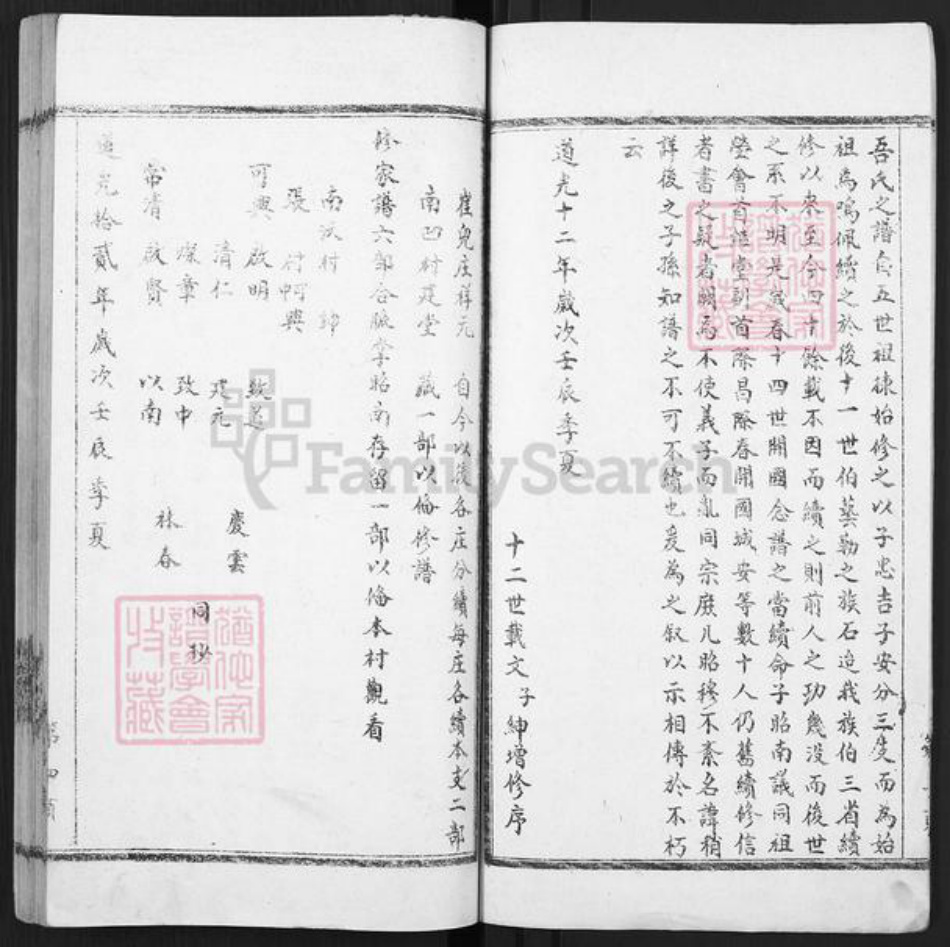 吾氏之譜自五世祖諫始修之以子忠吉子安分三支而為始
祖為鳴佩續之於後十一世伯藝勒之族石迨我族伯三省續
修以來至今四十餘載不因而續之則前人之功幾没而後世
之系不明是歲春十四世開國念譜之當續命子昭南議同祖
塋會首 堂副首際昌際春開國城安等數十人仍舊續修信
者書之疑者闕焉不使義子而亂同宗庶几昭穆不紊名諱稍
詳後之子孫知譜之不可不續也爰為之叙以示相傳於不朽
云
道光十二年歲次壬辰季夏
十二世載文子紳增修序
崔兒庄祥元 自今以後各庄分續每庄各續本支二部
南凹村廷堂 藏一部以俻修譜
修家譜六部合 掌昭南存留一部以俻本村觀看
南 村
張 村 興
可興 啟明 致遠 慶雲
清仁 廷元
燦章 致中 同抄
常清 啟賢 以南 林春
道光拾貳年歲次壬辰季夏
第四頁
FamilySearch